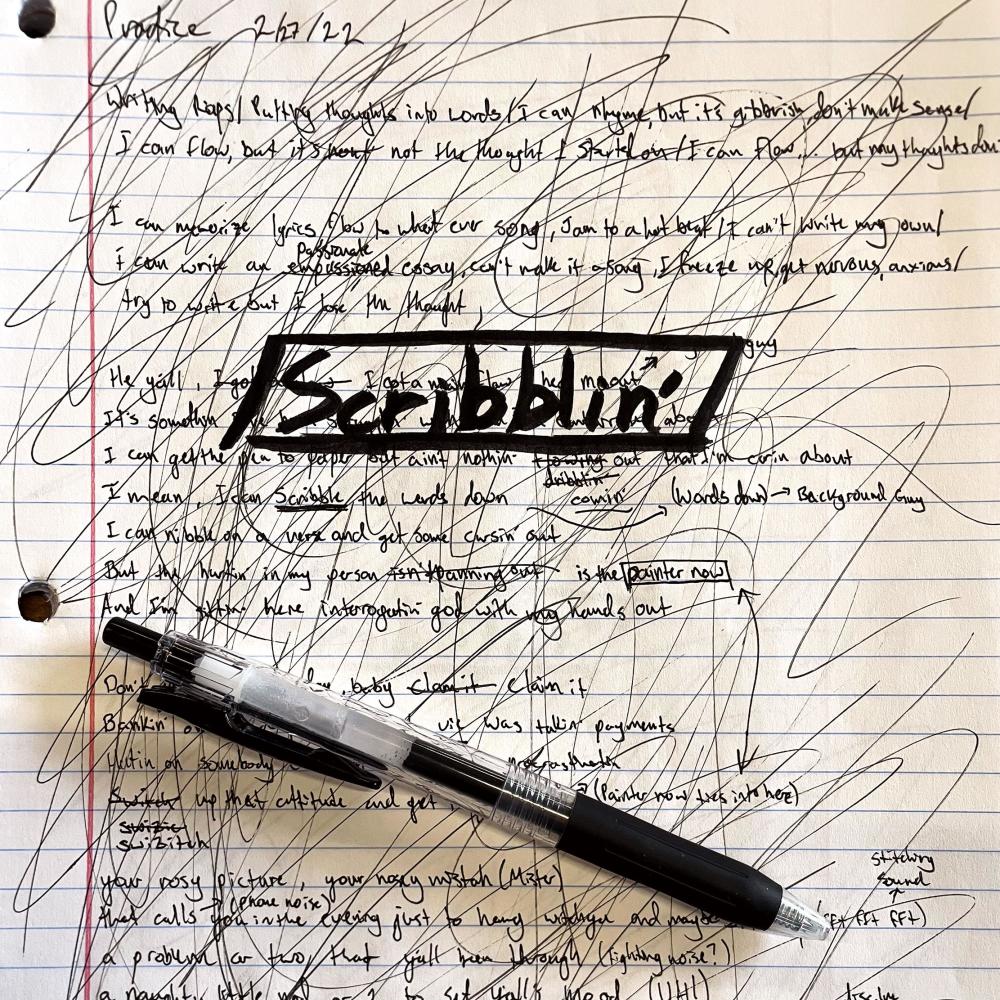 Practice 2/27/22
Writing Raps/ Putting thoughts into words/I can rhyme, but it's gibbrish, don't make sense/
I can flow, but it's not the thought I started on/I can flow... but my thoughts don'
I can memorize lyrics flow to what ever song, Jam to a hot beat/I can't write my own/
Passionate
i can write an essay, can't make it a song, I freeze up, get nervous, anxious/
try to write but I lose the thought,
guy
He y'all, I got a flow me out
Scribblin'
It's somethin
I can get the pen to paper but aint nothin flowing out that I'm carin about
dribblin'
I mean, I can Scribble the words down comin' (words down) → Background Guy
I can nibble on a verse and get some cursin' out
But the hurtin' in my person isn't panning out is the painter now
And I'm sittin' here interrogatin' god with my hands out
Don't baby claim it claim it
Bankin' was takin' payments
Hatin on somebody
Switch up that attitude and get (Painter now ties into here)
swizic
swizitch
stitchry
sound
your rosy picture, your nosey mistah (Mister)
(phone noise)
that calls you in the evening just to hang witchyu and maybe fft fft)
a problem or two, that y'all been through (lighting noise?)
a naughty little or 2 to set y'all's mood (UH!)